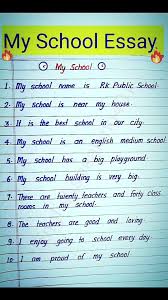 My School Essay
My School
1. My school name is Rk Public School.
2. My school is near my house.
3. It is the best school in our city.
4. My school is an english medium school.
5. My school has a big playground.
6. My school building is very big.
7. There are twenty teachers and forty class
rooms in my school.
8. The teachers are good and loving.
9. I enjoy going to school every day.
10. I am proud of my school.